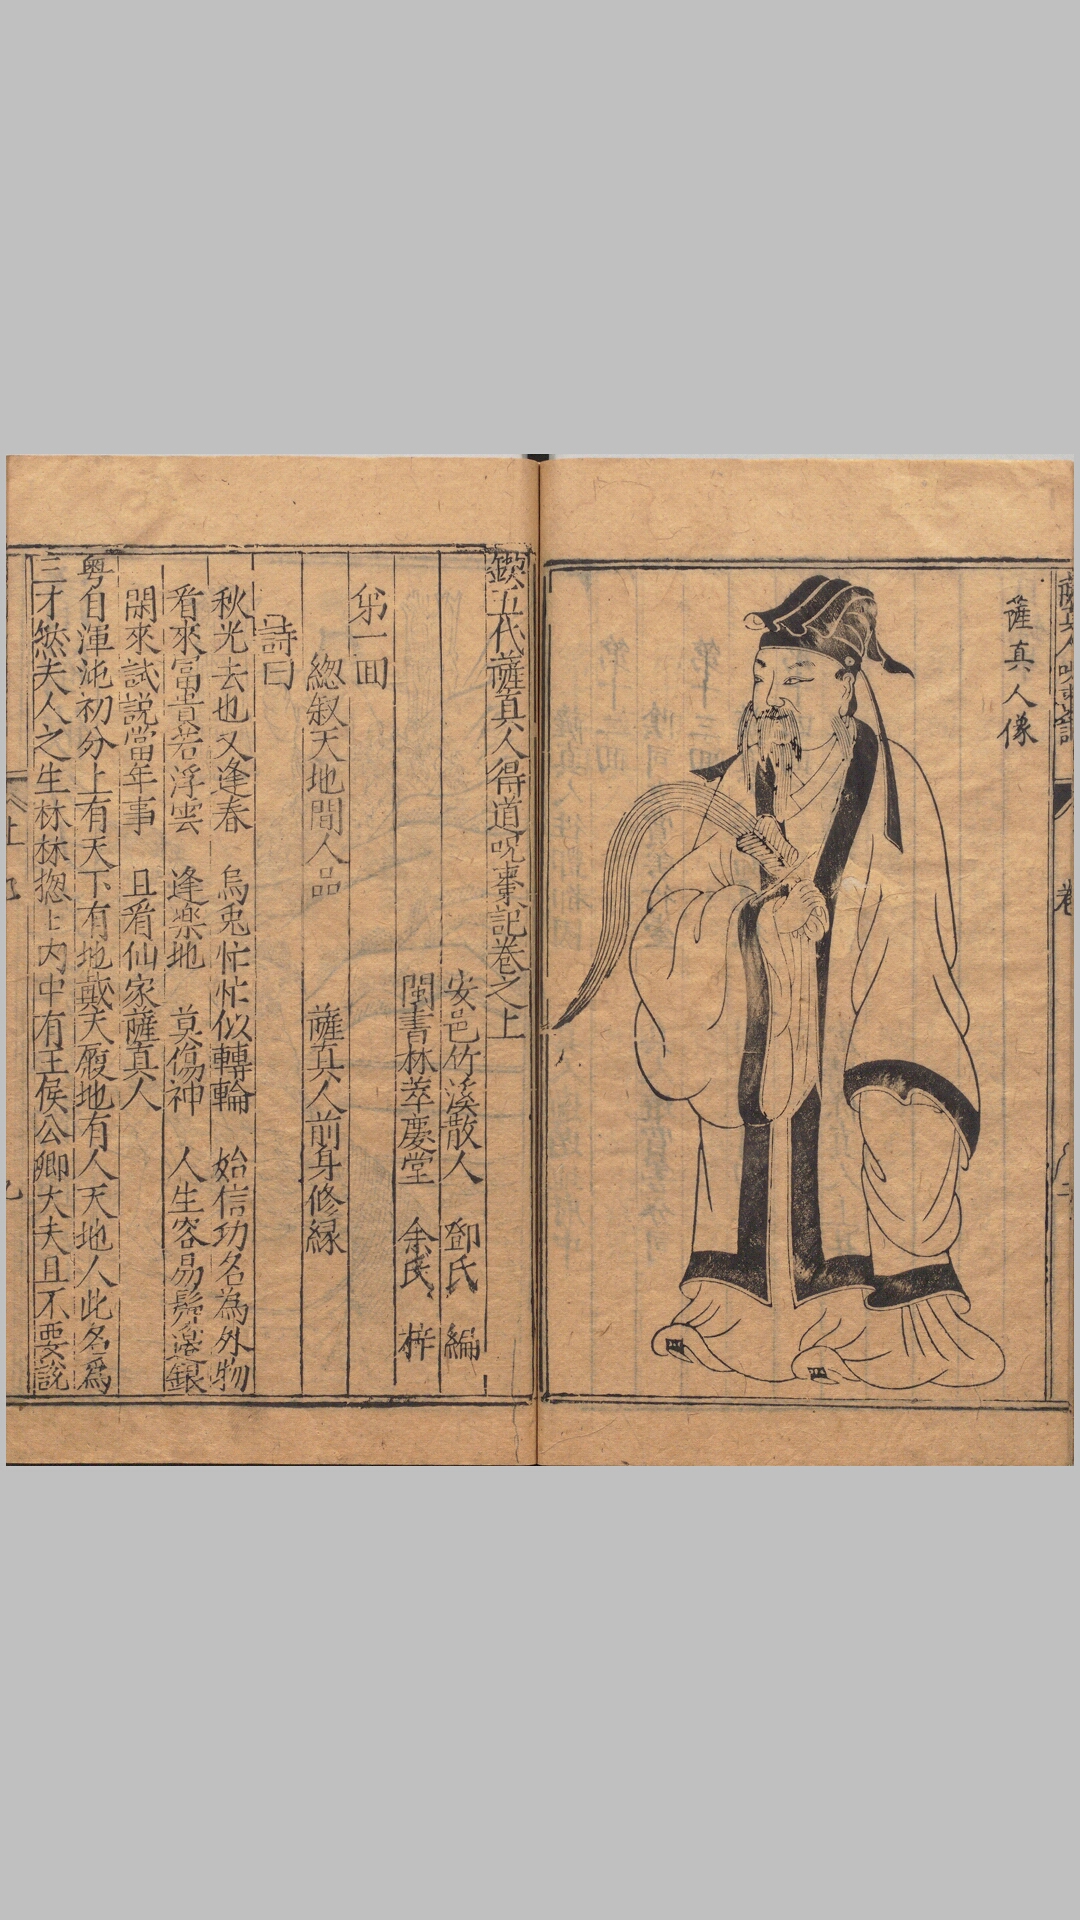 薩真人像
鐭五代薩真人得道呪棗記卷之上
安邑竹溪散人 鄧氏 編
閩書林萃慶堂 余氏 梓
第一回
總叙天地間人品 薩真人前身修緣
詩曰
秋光去也又逢春 烏兎忙忙似轉輪 始信功名為外物
看來冨貴若浮雲 逢樂地 莫傷神 人生容易鬂邉銀
閑來試説當年事 且看仙家薩真人
粤自渾沌初分上有天下有地戴天履地有人天地人此名爲
三才然夫人之生林林揔揔內中有王侯公卿大夫且不要說